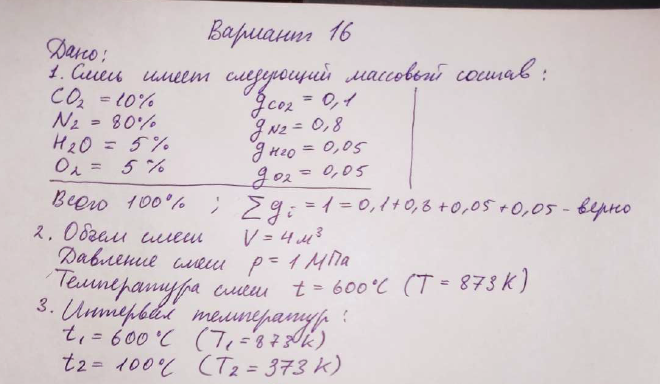 Вариант 16
Дано:
1. Смесь имеет следующий массовый состав:
CO₂ = 10% g CO2 = 0,1
N₂ = 80% g N2 = 0,8
H₂O = 5% g H2O = 0,05
O₂ = 5% g O2 = 0,05
Всего 100% ; ∑ gᵢ = 1 = 0,1+0,8+0,05+0,05 - верно
2. Объем смеси V = 4 м³
Давление смеси p = 1 МПа
Температура смеси t = 600°C (T = 873 K)
3. Интервал температур:
t₁ = 600°C (T₁ = 873 K)
t₂ = 100°C (T₂ = 373 K)